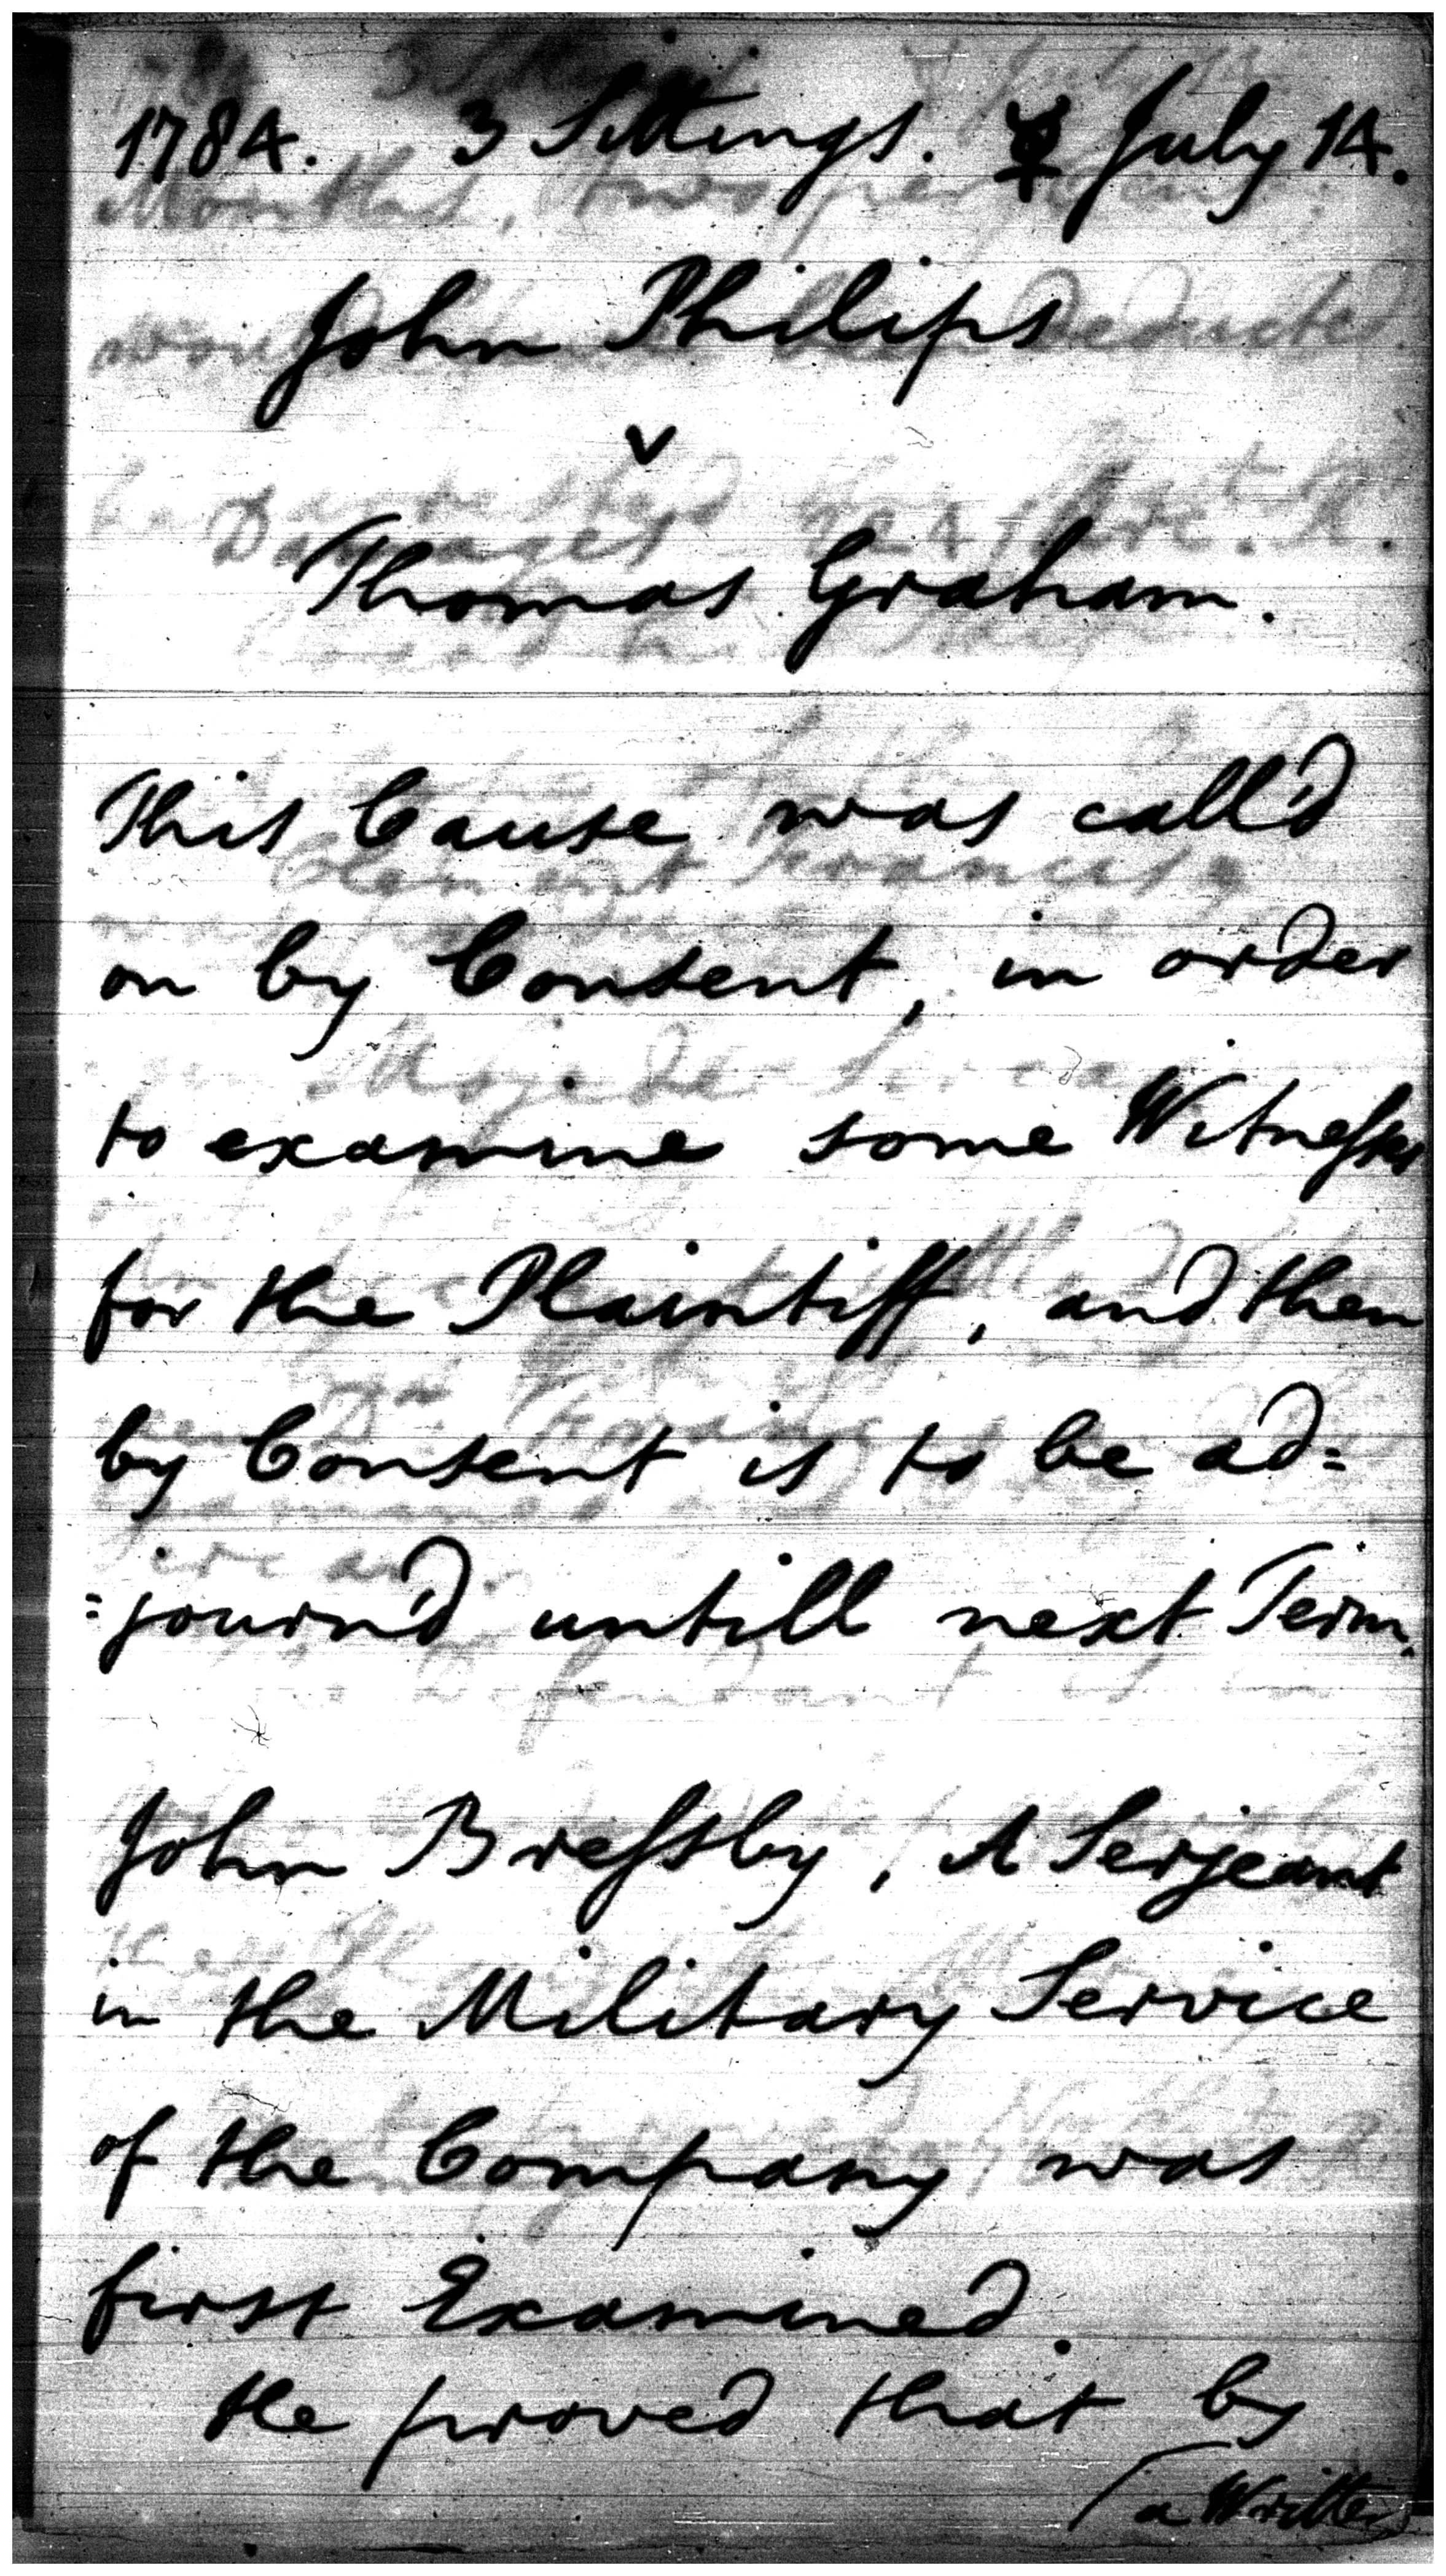 1784. 3 Sittings. ☿ July 14.
John Philips
v
Thomas Graham.
This Cause was call'd
on by Consent, in order
to examine some Witnesses
for the Plaintiff, and then
by Consent is to be ad=
=journ'd untill next Term.
John Bressby, A Serjeant
in the Military Service
of the Company was
first Examined.
He proved that by
(a Written